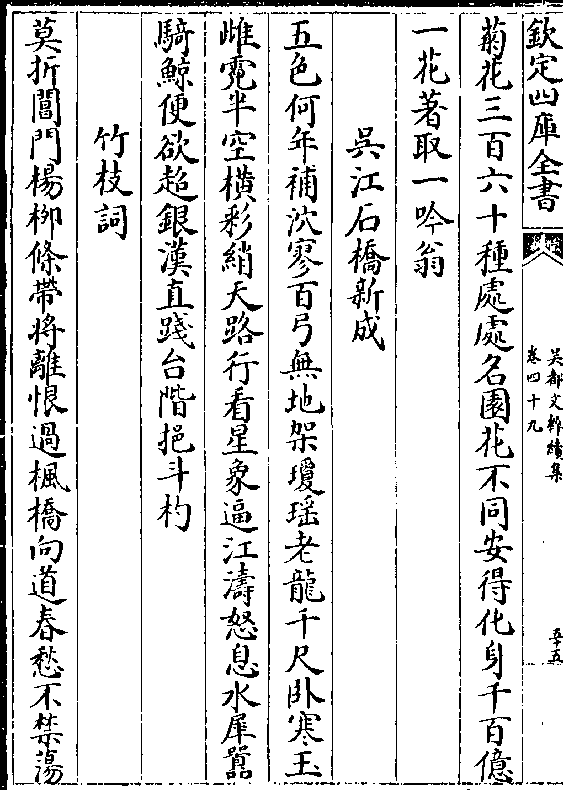 欽定四庫全書
吳都文粹續集
卷四十九
五十五
菊花三百六十種處處名園花不同安得化身千百億
一花著取一吟翁
吳江石橋新成
五色何年補沇寥百弓無地架瓊瑶老龍千尺卧寒玉
雌霓半空橫彩綃天路行看星象逼江濤怒息水犀嚣
騎鯨便欲超銀漢直踐台階挹斗杓
竹枝詞
莫折閶門楊柳條帶將離恨過楓橋向道春愁不禁蕩